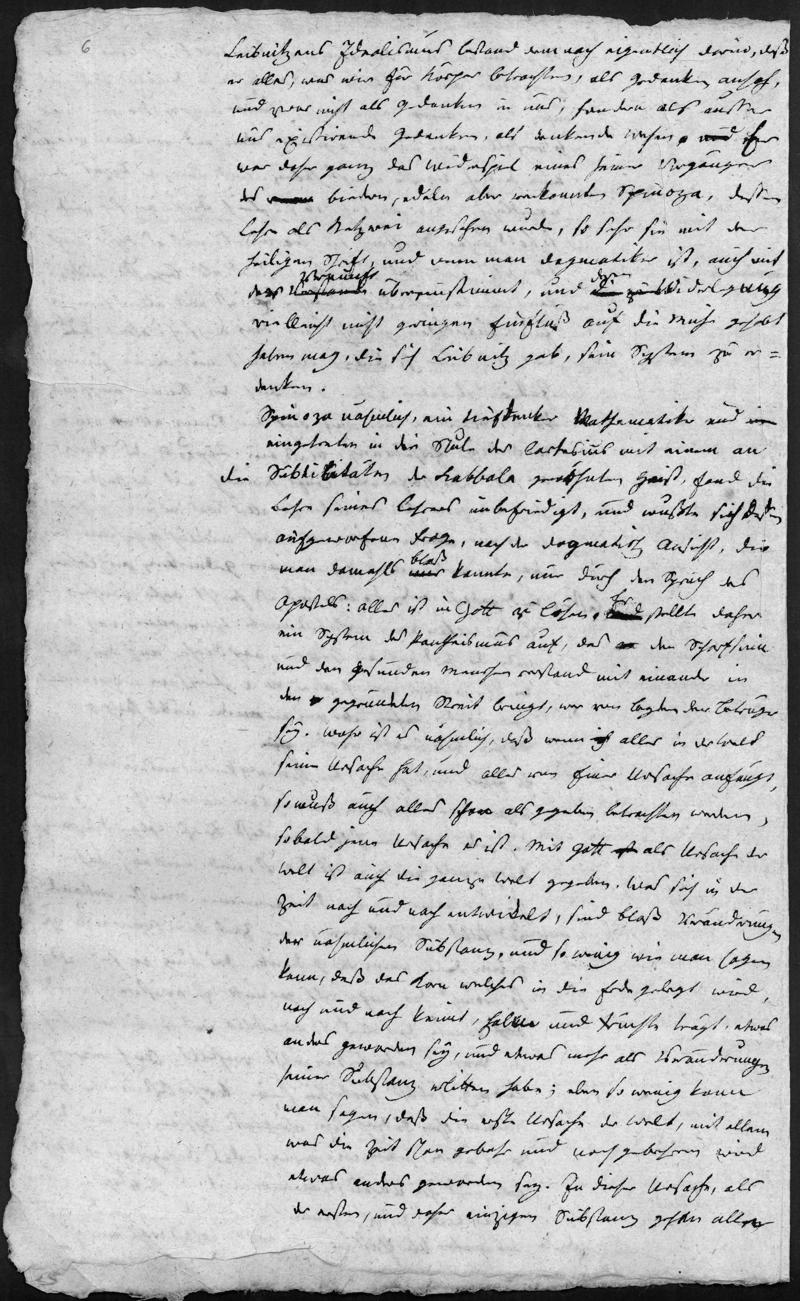 6
Leibnitzens Idealismus bestand demnach eigentlich darin, daß
er alles, was wir für Körper betrachten, als Gedanken ansah,
und zwar nicht als Gedanken in uns, sondern als ausser
uns existirende Gedanken, als denkende Wesen, und Er
war daher ganz das Widerspiel eines seiner Vorgänger
des biedern, edeln aber verkannten Spinoza, dessen
Lehre als Ketzerei angesehen wurde, so sehr sie mit der
heiligen Schrift, und wenn man Dogmatiker ist, auch mit
Vernunft
der Verstande übereinstimmt, und deren Widerlegung
vielleicht nicht geringen Einfluß auf die Mühe gehabt
haben mag, die sich Leibnitz gab, sein System zu er=
denken.
Spinoza nähmlich, ein tiefdenker Mathematiker und
eingetreten in die Schule des Cartesius mit einem an
die Subtilitäten der Kabbala gewöhnten Geist, fand die
Lehre seines Lehrers unbefriedigt, und wußte sich dessen
aufgeworfene Frage, nach der dogmatisch Ansicht, die
man damahls blos kannte, nur durch den Spruch des
Apostels: alles ist in Gott zu lösen. Er stellte daher
ein System des Pantheismus auf, das den Scharfsinn
und den gesunden Menschenverstand mit einander in
den gegründeten Streit bringt, wer von beyden der Betrüger
sey. Wahr ist es nähmlich, daß wenn alles in der Welt
seine Ursache hat, und alles von Einer Ursache anhängt,
so muß auch alles schon als gegeben betrachtet werden,
sobald jene Ursache es ist. Mit Gott als Ursache der
Welt ist auch die ganze Welt gegeben. Was sich in der
Zeit nach und nach entwickelt, sind blos Veränderungen
der nähmlichen Substanz, und so wenig wie man sagen
kann, daß das Korn welches in die Erde gelegt wird,
nach und nach keimt, Halme und Früchte trägt, etwas
anders geworden sey, und etwas mehr als Veränderungen
seiner Substanz erlitten habe; eben so wenig kann
man sagen, daß die erste Ursache der Welt, mit allem
was die Zeit schon gebahr und noch gebähren wird
etwas anders geworden sey. Zu dieser Ursache, als
der ersten, und daher einzigen Substanz gehören alle